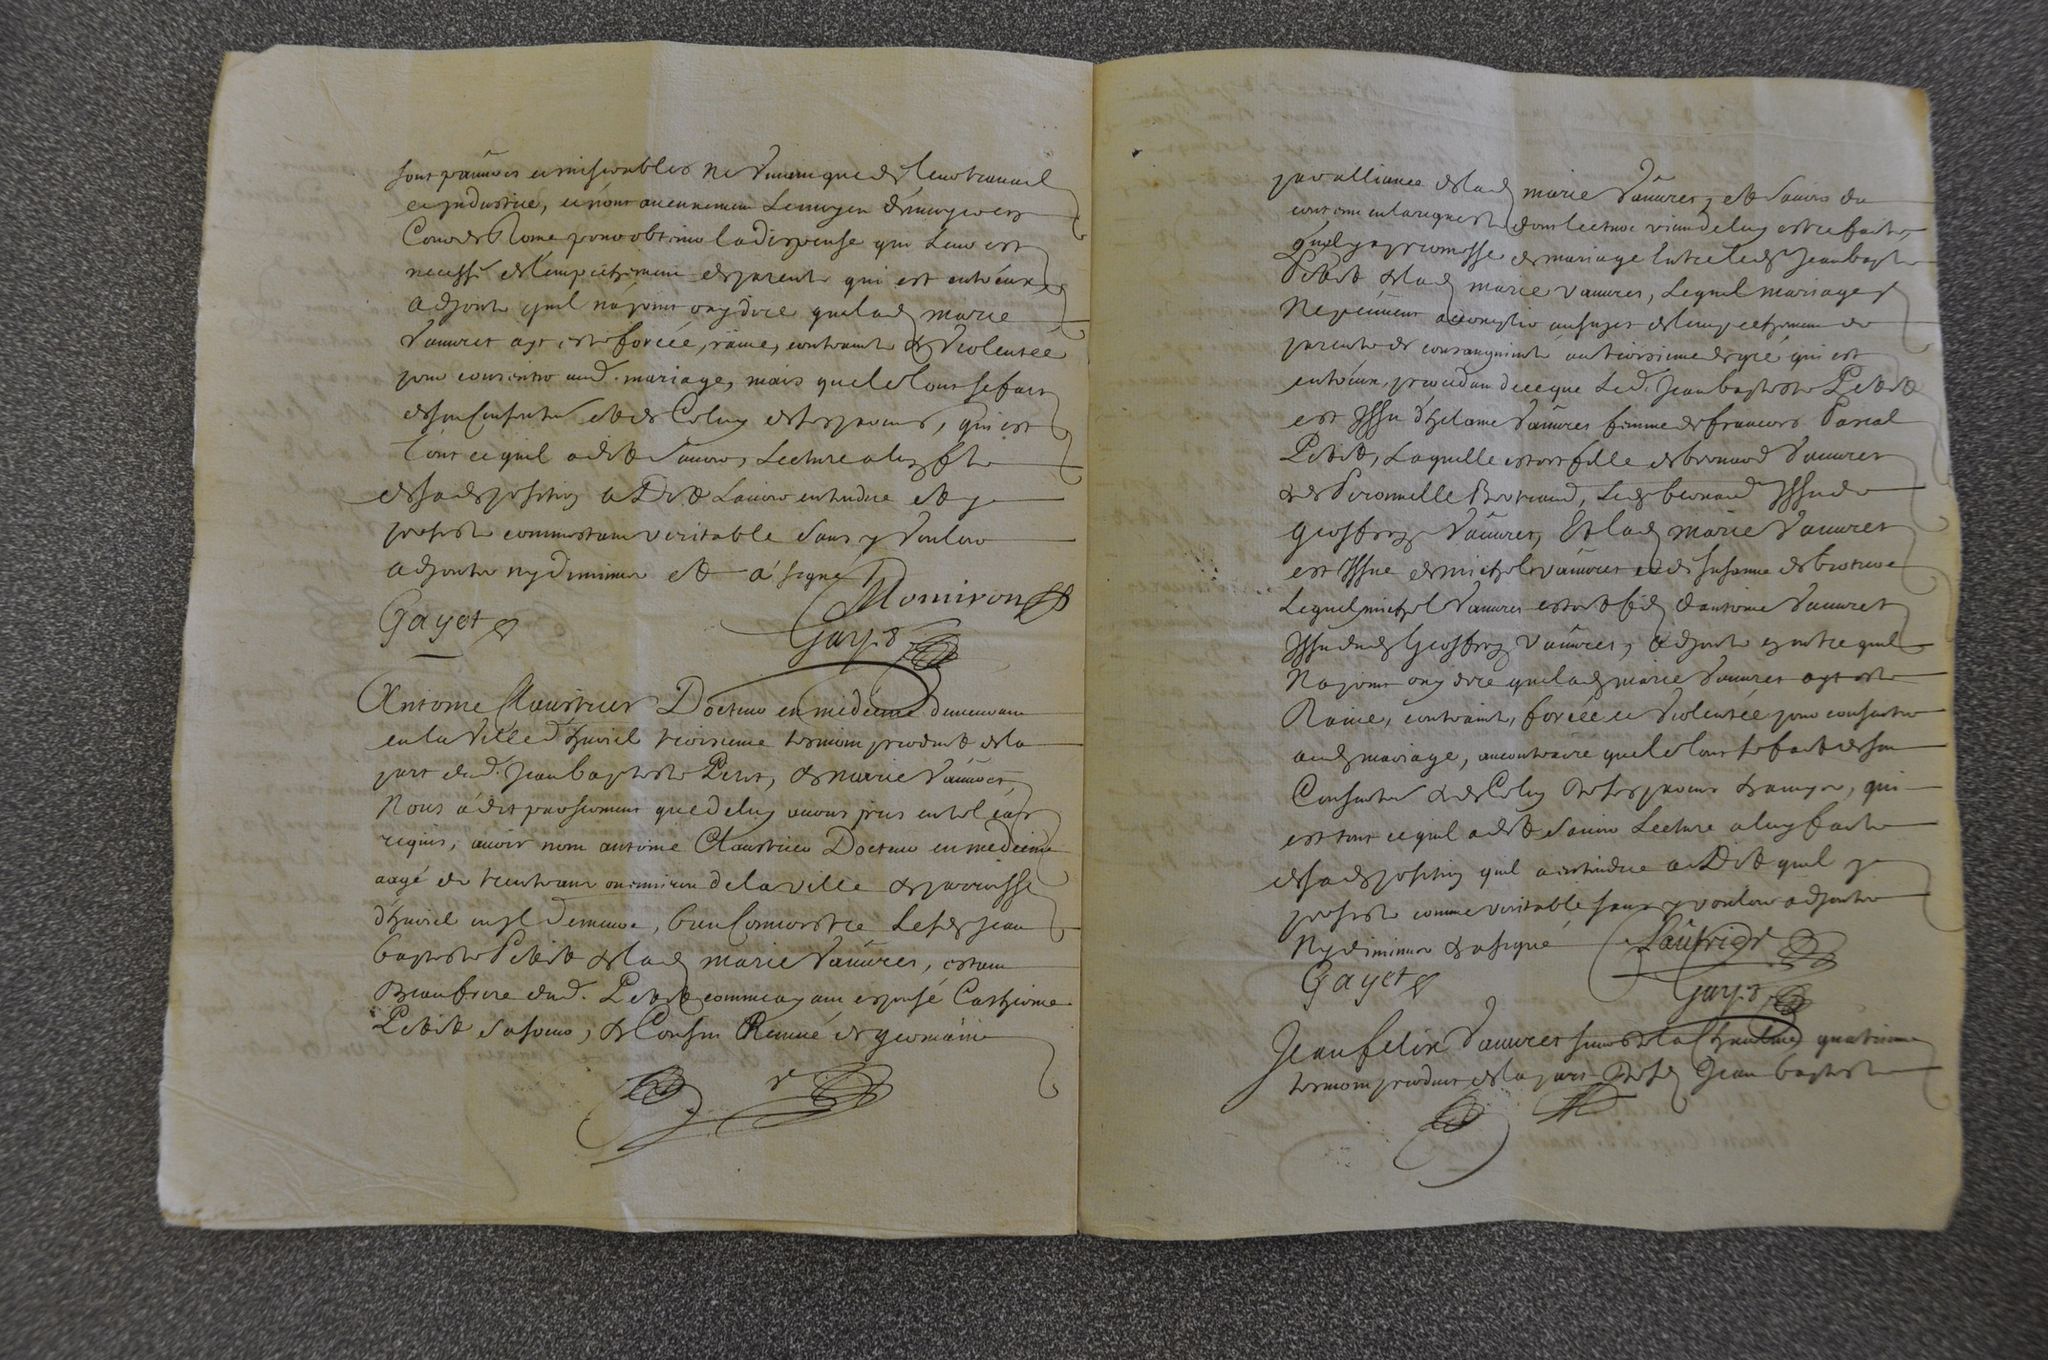 sont pauures et miserables ne viuant que de leur trauail
et industrie, et n'ont aucunement le moyen d'enuoyer en
Cour de Rome pour obtenir la dispense qui leur est
necess.e de l'empeschement de parenté qui est entr'eux,
adjoute qu'il n'a point ouy dire que lad. marie
Vauuret ayt esté forcée, rauie, contrainte et violentée
pour consentir aud. mariage, mais que le tout se fait
de son consentem.t et de celuy de ses parens, qui est
tout ce qu'il a dit sauoir, Lecture a luy f.te
de sa deposition a dit l'auoir entendue et y
persiste comme estant veritable sans y vouloir
adjouter ny diminuer et a signé Momiron
Gayet Gay.d
Antoine Claustrier Docteur en medecine demeurant
en la Ville d'huriel troisieme tesmoin produit de la
part dud. Jean baptiste Petit, et marie Vauuret,
Nous a dit par serment que de luy auons pris en tel cas
requis, auoir nom antoine Claustrier Docteur en medecine
aagé de trente ans ou enuiron de la ville et parroisse
d'huriel ou il demeure, bien connoistre lesd. Jean
baptiste Petit et lad. marie Vauuret, estant
Beaufrere dud. Petit comme ayant espousé Catherine
Petit sa soeur, et Cousin Remué de germain
par alliance de lad. marie Vauuret, et sauoir du
contenu en la requeste dont lecture vient de luy estre faite,
qu'il y a promesse de mariage entre led. Jean bapt.e
Petit et lad. marie Vauuret, lequel mariage
Ne peuuent accomplir au sujet de l'empeschement de
parenté de consanguinité au troisieme degré qui est
entr'eux, procedant de ce que led. Jean baptiste Petit
est Issu d'helaine Vauuret femme de francois Pascal
Petit, laquelle estoit fille de bernard Vauuret
et de Peronnelle Bertrand, led. bernard Issu de
Geoffroy Vauuret, Et lad. marie Vauuret
est Issue de michel Vauuret et de susanne de
Lequel michel Vauuret estoit fils d'antoine Vauuret
Issu dud. Geoffroy Vauuret, adjoute en outre qu'il
Na point ouy dire que lad. marie Vauuret ayt esté
Rauie, contrainte, forcée et violentée pour consentir
aud. mariage, au contraire que le tout se fait de son
Consentem.t et de Celuy de ses parens et amys, qui
est tout ce qu'il a dit sauoir Lecture a luy faite
de sa deposition qu'il a entendue a Dit qu'il y
persiste comme veritable sans y vouloir adjouter
Ny diminuer et a signé Claustrier
Gayet Gay.d
Jean felix Vauuret sieur de la quatrieme
tesmoin produit de la part desd. Jean baptiste